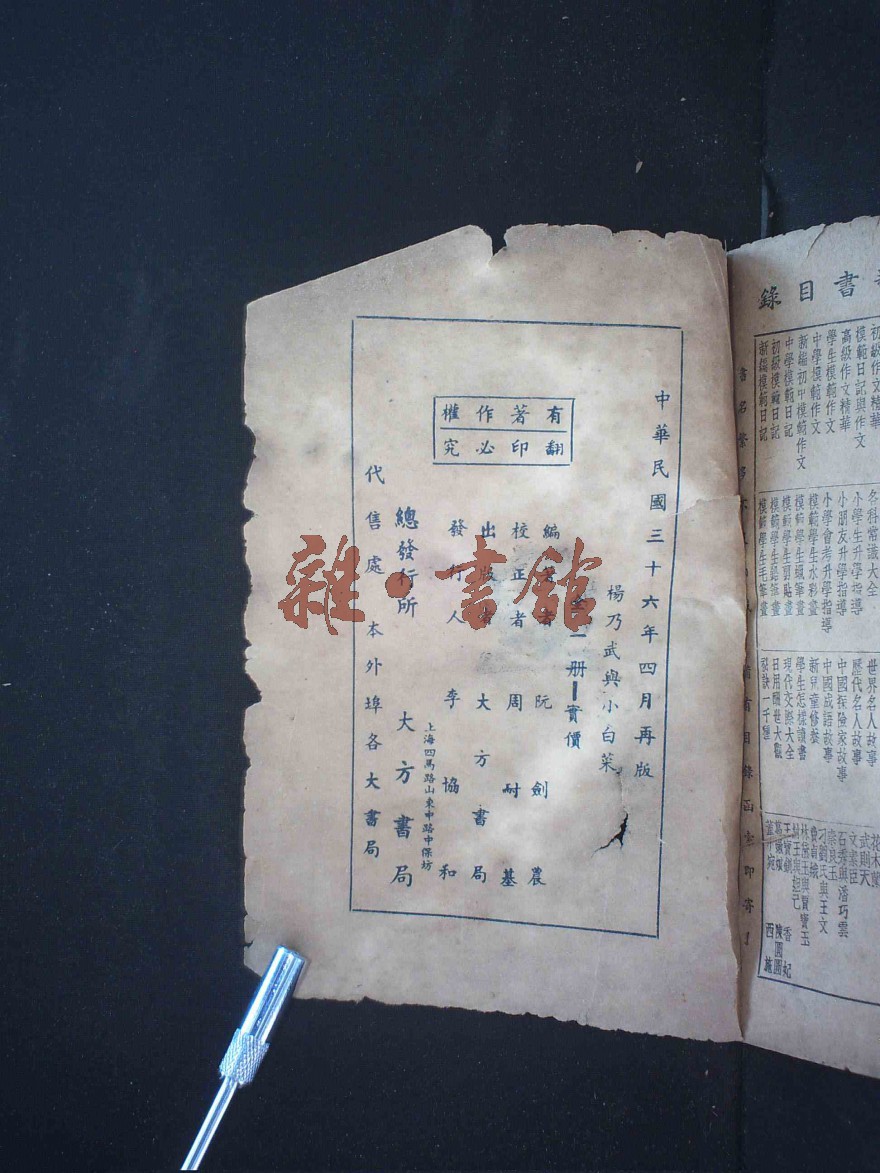 中華民國三十六年四月再版
楊乃武與小白菜
全一册 實價
編著者 阮劍農
校正者 周耐基
出版者 大方書局
發行人 李協和
上海四馬路山東中路中保坊
總發行所 大方書局
代售處 本外埠各大書局
有著作權
翻印必究
雜·書館
書目錄
初級作文精華
模範日記與作文
高級作文精華
學生模範作文
中學模範作文
新編初中模範作文
中學模範日記
初級模範日記
新編模範日記
各科常識大全
小學生升學指導
小朋友升學指導
小學會考升學指導
模範學生水彩畫
模範學生蠟筆畫
模範學生剪貼畫
模範學生鉛筆畫
模範學生毛筆畫
世界名人故事
歷代名人故事
中國探險家故事
中國成語故事
新兒童修養
學生怎樣讀書
現代交際大全
日用酬世大觀
秘訣一千種
花木蘭
武則天
文素臣
石秀與潘巧雲
梁良玉
刁劉氏與王文
林黛玉與賈寶玉
紂王與妲己
王寶釧
葛嫩娘
董小宛
香妃
陳圓圓
西施